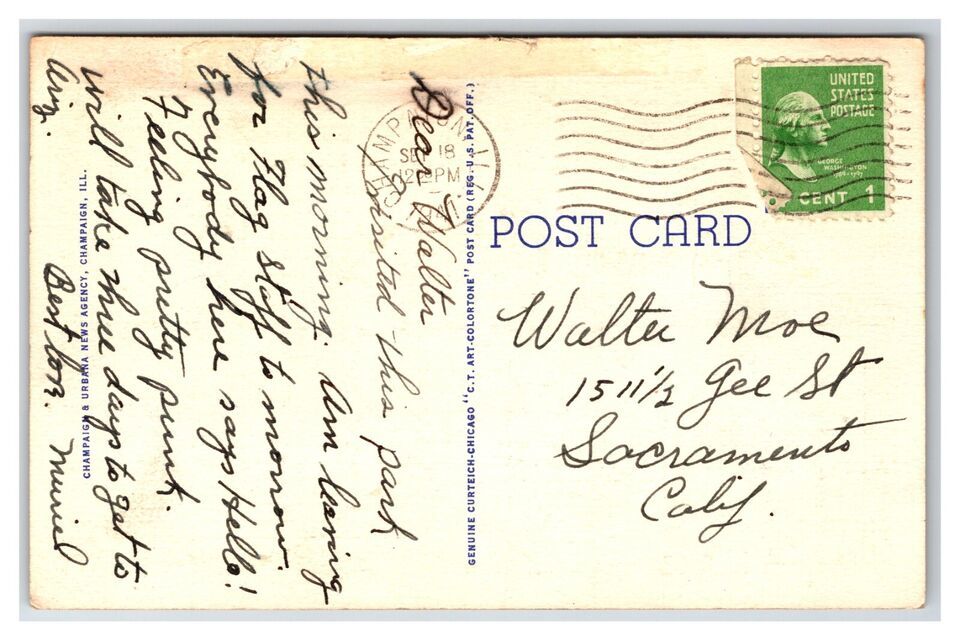 Dear Walter
Visited this park
this morning. Am leaving
for Flag Staff to morrow.
Everybody here says Hello!
Feeling pretty punk.
will take three days to get to
Ariz.
Best love. Muriel
CHAMPAIGN & URBANA NEWS AGENCY, CHAMPAIGN, ILL.
GENUINE CURTEICH-CHICAGO "C.T. ART-COLORTONE" POST CARD (REG. U.S. PAT. OFF.)
SEP 18
12 PM
UNITED
STATES
POSTAGE
GEORGE
WASHINGTON
CENT 1
POST CARD
Walter Moe
1511 1/2 Gee St
Sacramento
Calif.